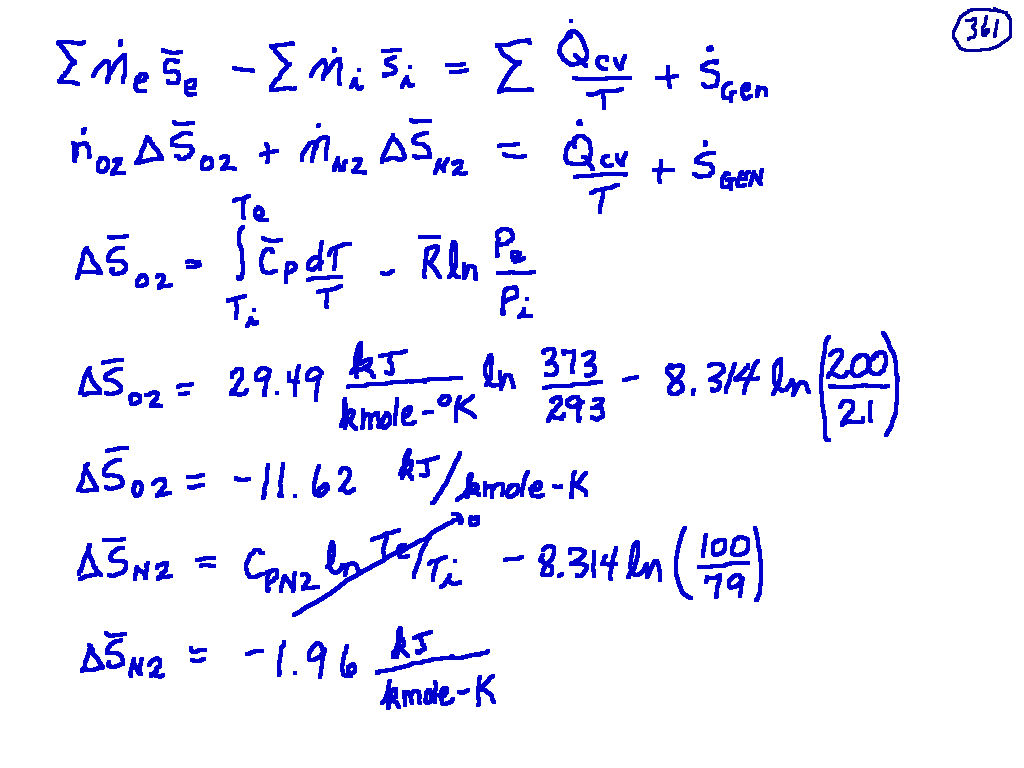 361
Σ ṁe s̄e - Σ ṁi s̄i = Σ Q̇cv/T + ṠGen
ṅO2 ΔS̄O2 + ṁN2 ΔS̄N2 = Q̇cv/T + ṠGEN
ΔS̄O2 = ∫Ti^Te C̄p dT/T - R̄ ln Pe/Pi
ΔS̄O2 = 29.49 kJ/kmole-°K ln 373/293 - 8.314 ln (200/21)
ΔS̄O2 = -11.62 kJ/kmole-K
ΔS̄N2 = CPN2 ln Te/Ti → 0 - 8.314 ln (100/79)
ΔS̄N2 = -1.96 kJ/kmole-K